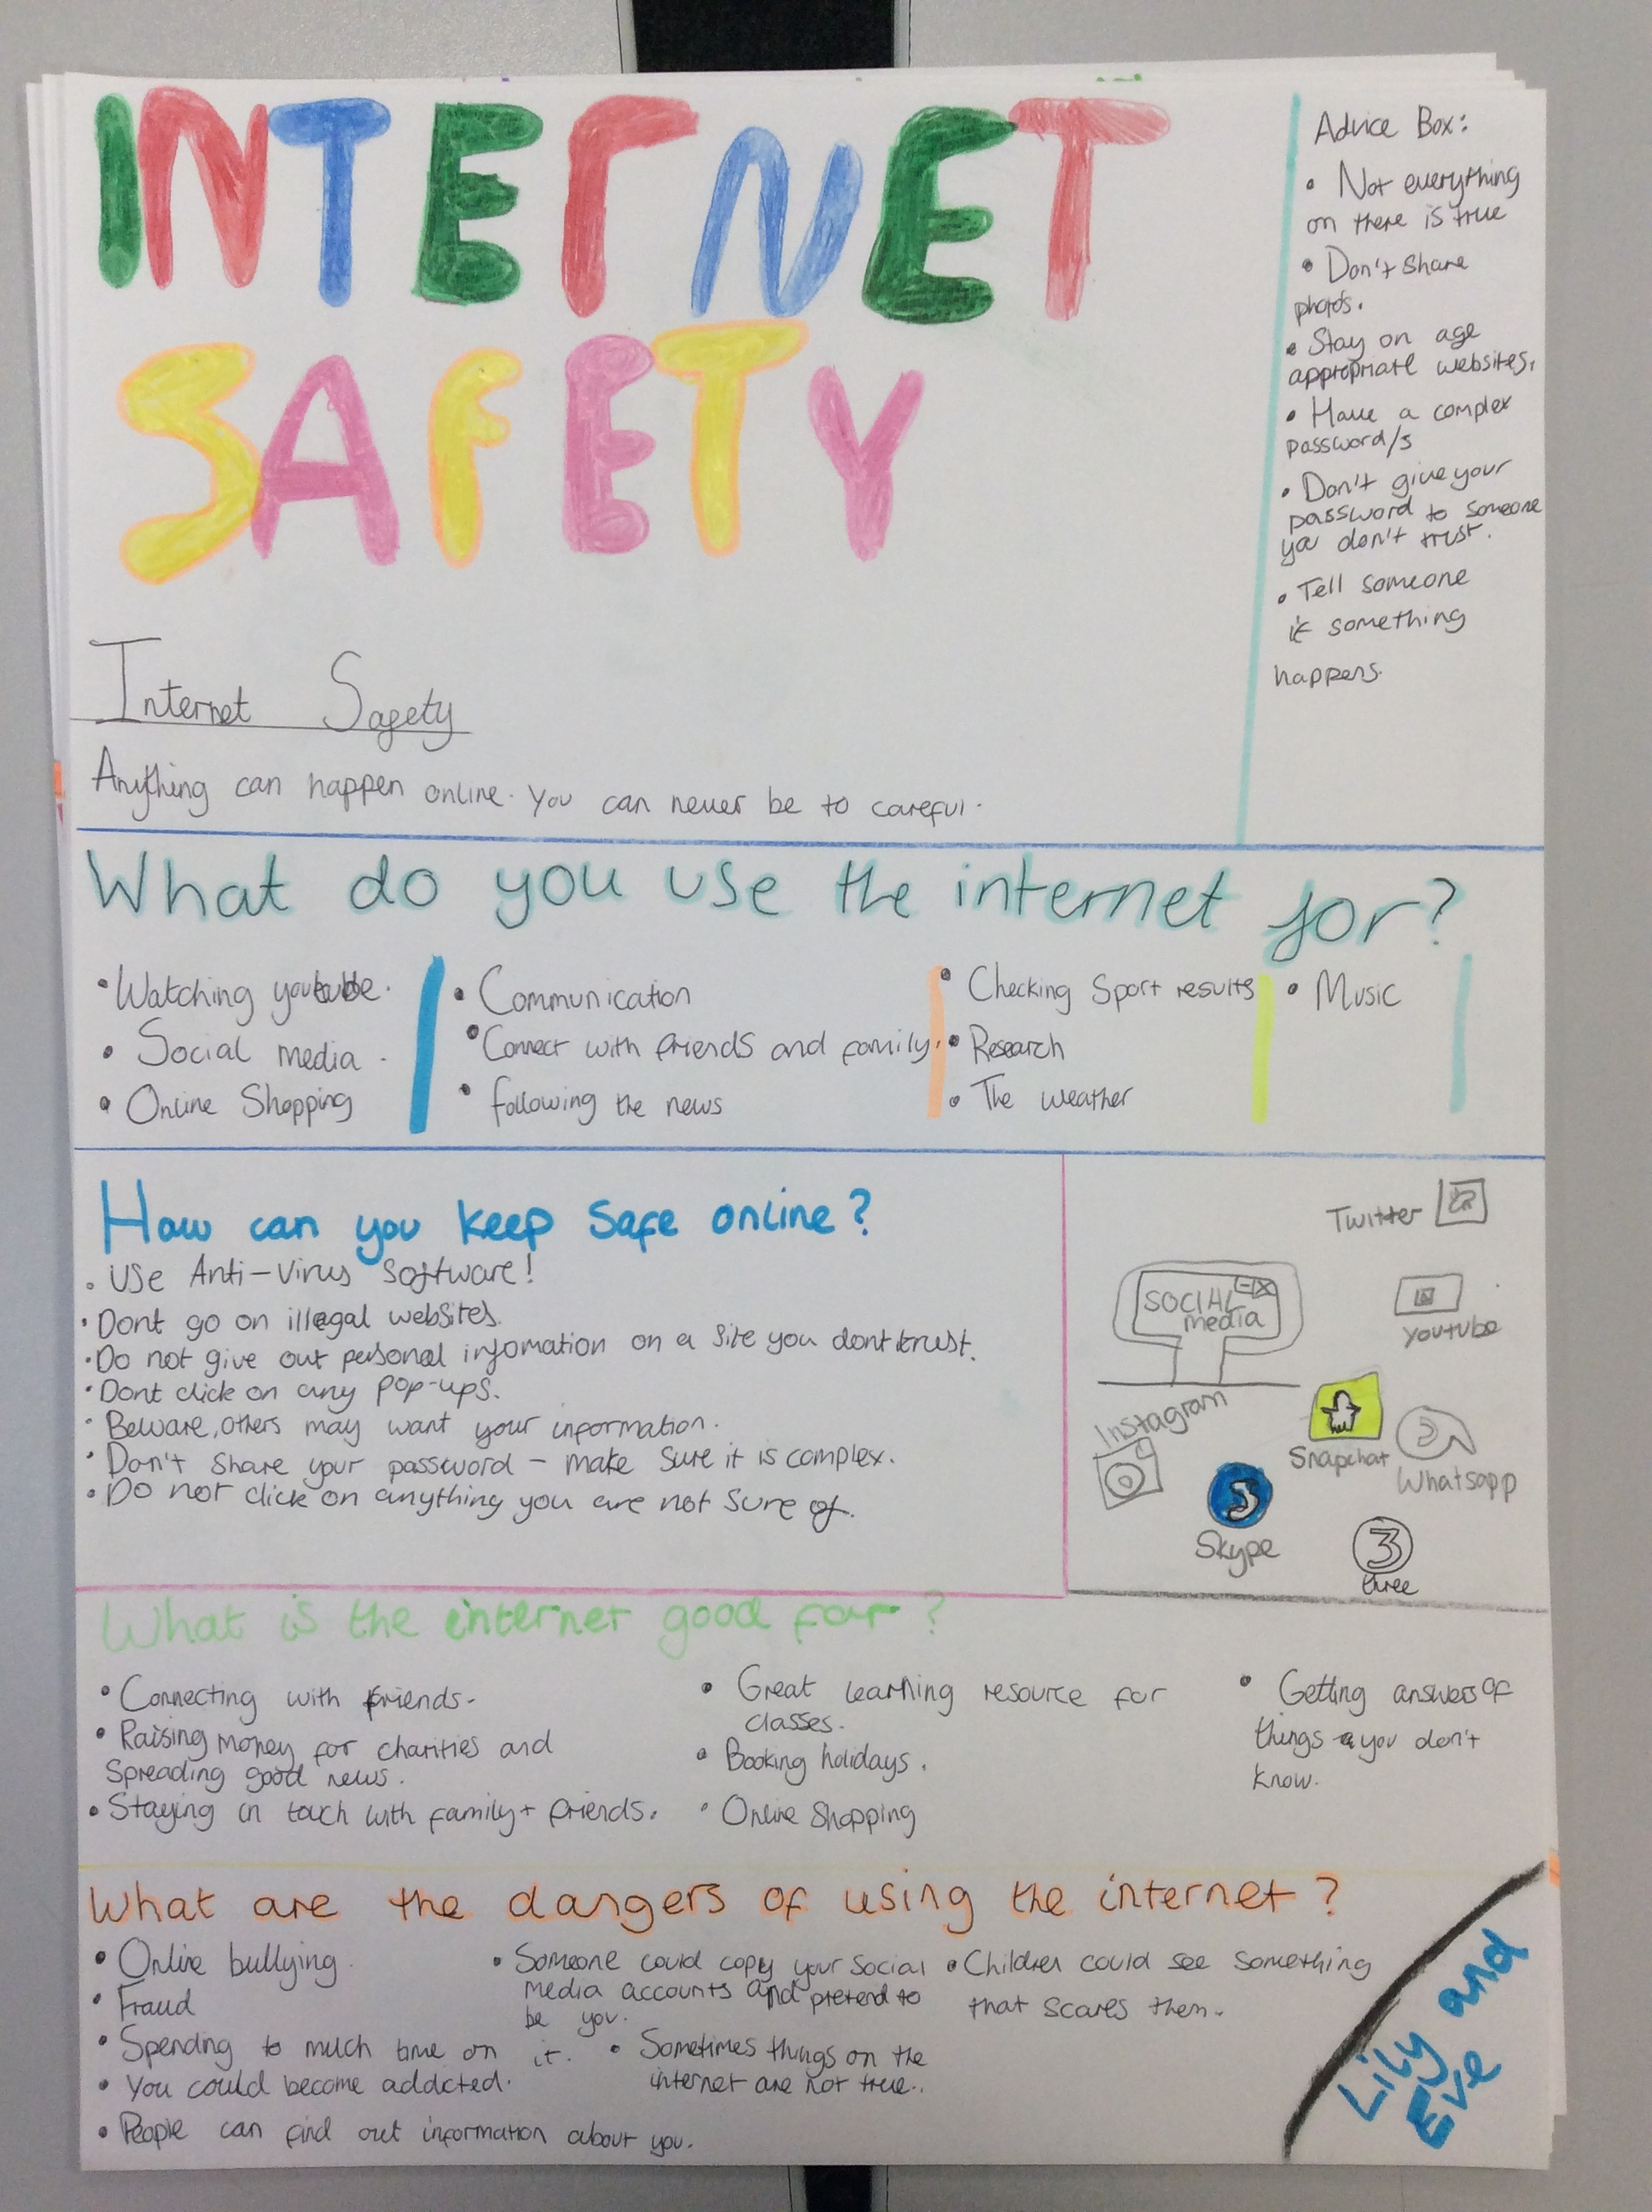 INTERNET
SAFETY
Internet Safety
Anything can happen online. You can never be to careful.
Advice Box:
• Not everything
on there is true
• Don't share
photos.
• Stay on age
appropriate websites.
• Have a complex
password/s
• Don't give your
password to someone
you don't trust.
• Tell someone
if something
happens.
What do you use the internet for?
• Watching youtube.
• Social media.
• Online Shopping
• Communication
• Connect with friends and family.
• following the news
• Checking Sport results
• Research
• The weather
• Music
How can you keep safe online?
• Use Anti-Virus Software!
• Dont go on illegal websites.
• Do not give out personal infomation on a site you dont trust.
• Dont click on any pop-ups.
• Beware, others may want your information.
• Don't share your password - make sure it is complex.
• Do not click on anything you are not sure of.
Twitter
SOCIAL
media
youtube
Instagram
Snapchat
Whatsapp
Skype
3
three
What is the internet good for?
• Connecting with friends.
• Raising money for charities and
spreading good news.
• Staying in touch with family + friends.
• Great learning resource for
classes.
• Booking holidays.
• Online shopping
• Getting answers of
things you don't
know.
What are the dangers of using the internet?
• Online bullying.
• Fraud
• Spending to much time on it.
• You could become addcted.
• People can find out information about you.
• Someone could copy your social
media accounts and pretend to
be you.
• Sometimes things on the
internet are not true..
• Children could see something
that scares them.
Lily and
Eve